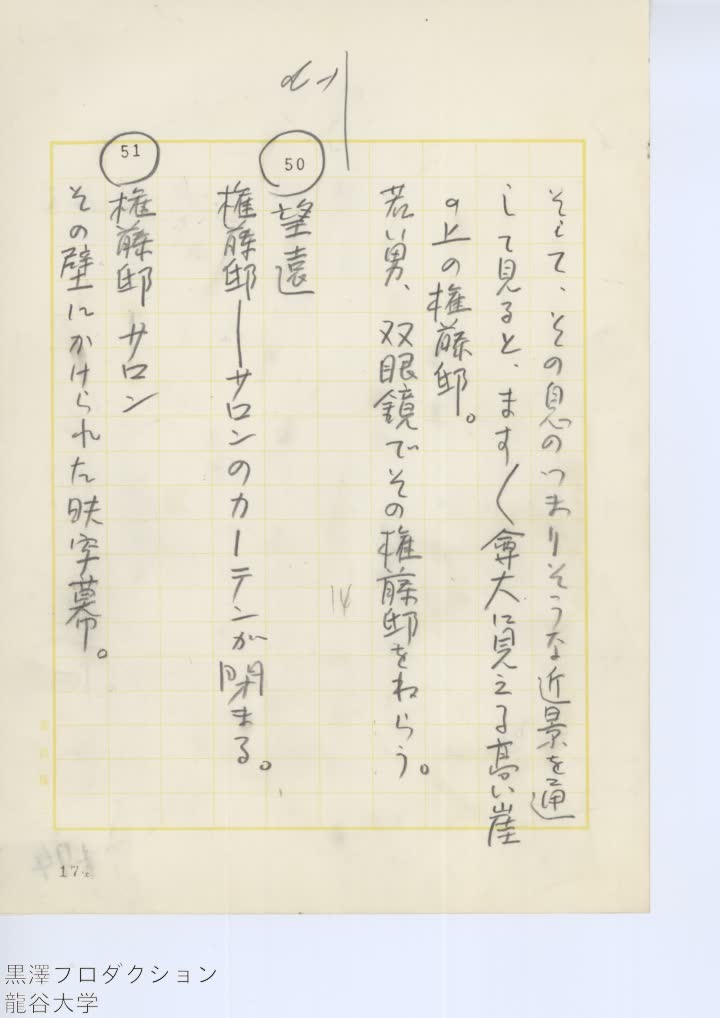 そして、その息のつまりそうな近景を通
して見ると、ます〱尊大に見える高い崖
の上の権藤邸。
若い男、双眼鏡でその権藤邸をねらう。
50 望遠
権藤邸―サロンのカーテンが閉まる。
51 権藤邸 サロン
その壁にかけられた映写幕。
14
黒澤プロダクション
龍谷大学